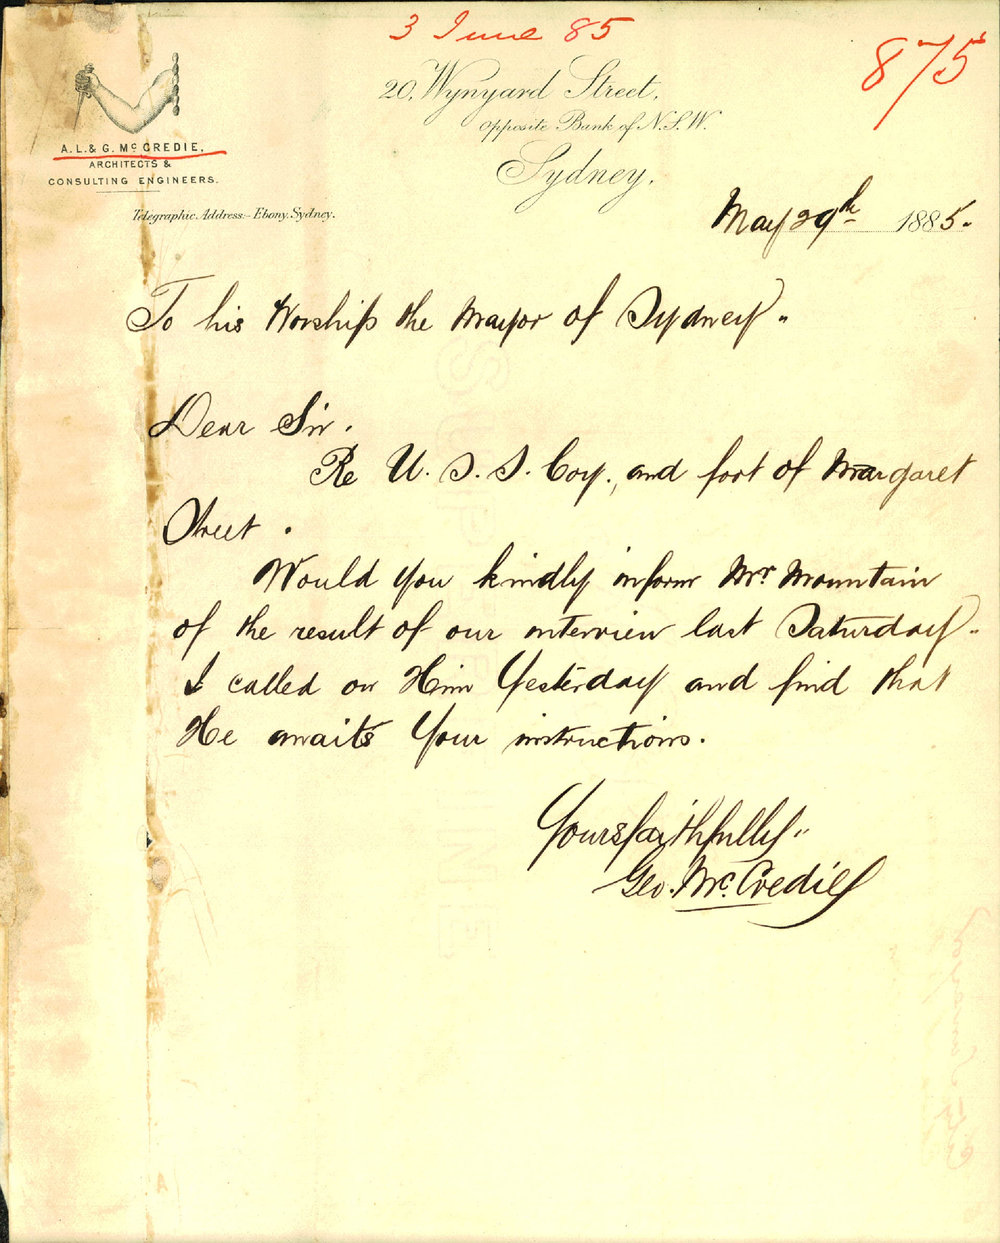 3 June 85
875
20, Wynyard Street,
opposite Bank of N.S.W.
Sydney,
A. L. & G. Mc CREDIE,
ARCHITECTS &
CONSULTING ENGINEERS.
Telegraphic Address:- Ebony. Sydney.
May 29th 1885.
To his Worship the Mayor of Sydney.
Dear Sir.
Re U. S. S. Coy., and foot of Margaret
Street.
Would you kindly inform Mr. Mountain
of the result of our interview last Saturday.
I called on Him Yesterday and find that
He awaits Your instructions.
Yours faithfully
Geo. Mc. Credie
SUPERFINE